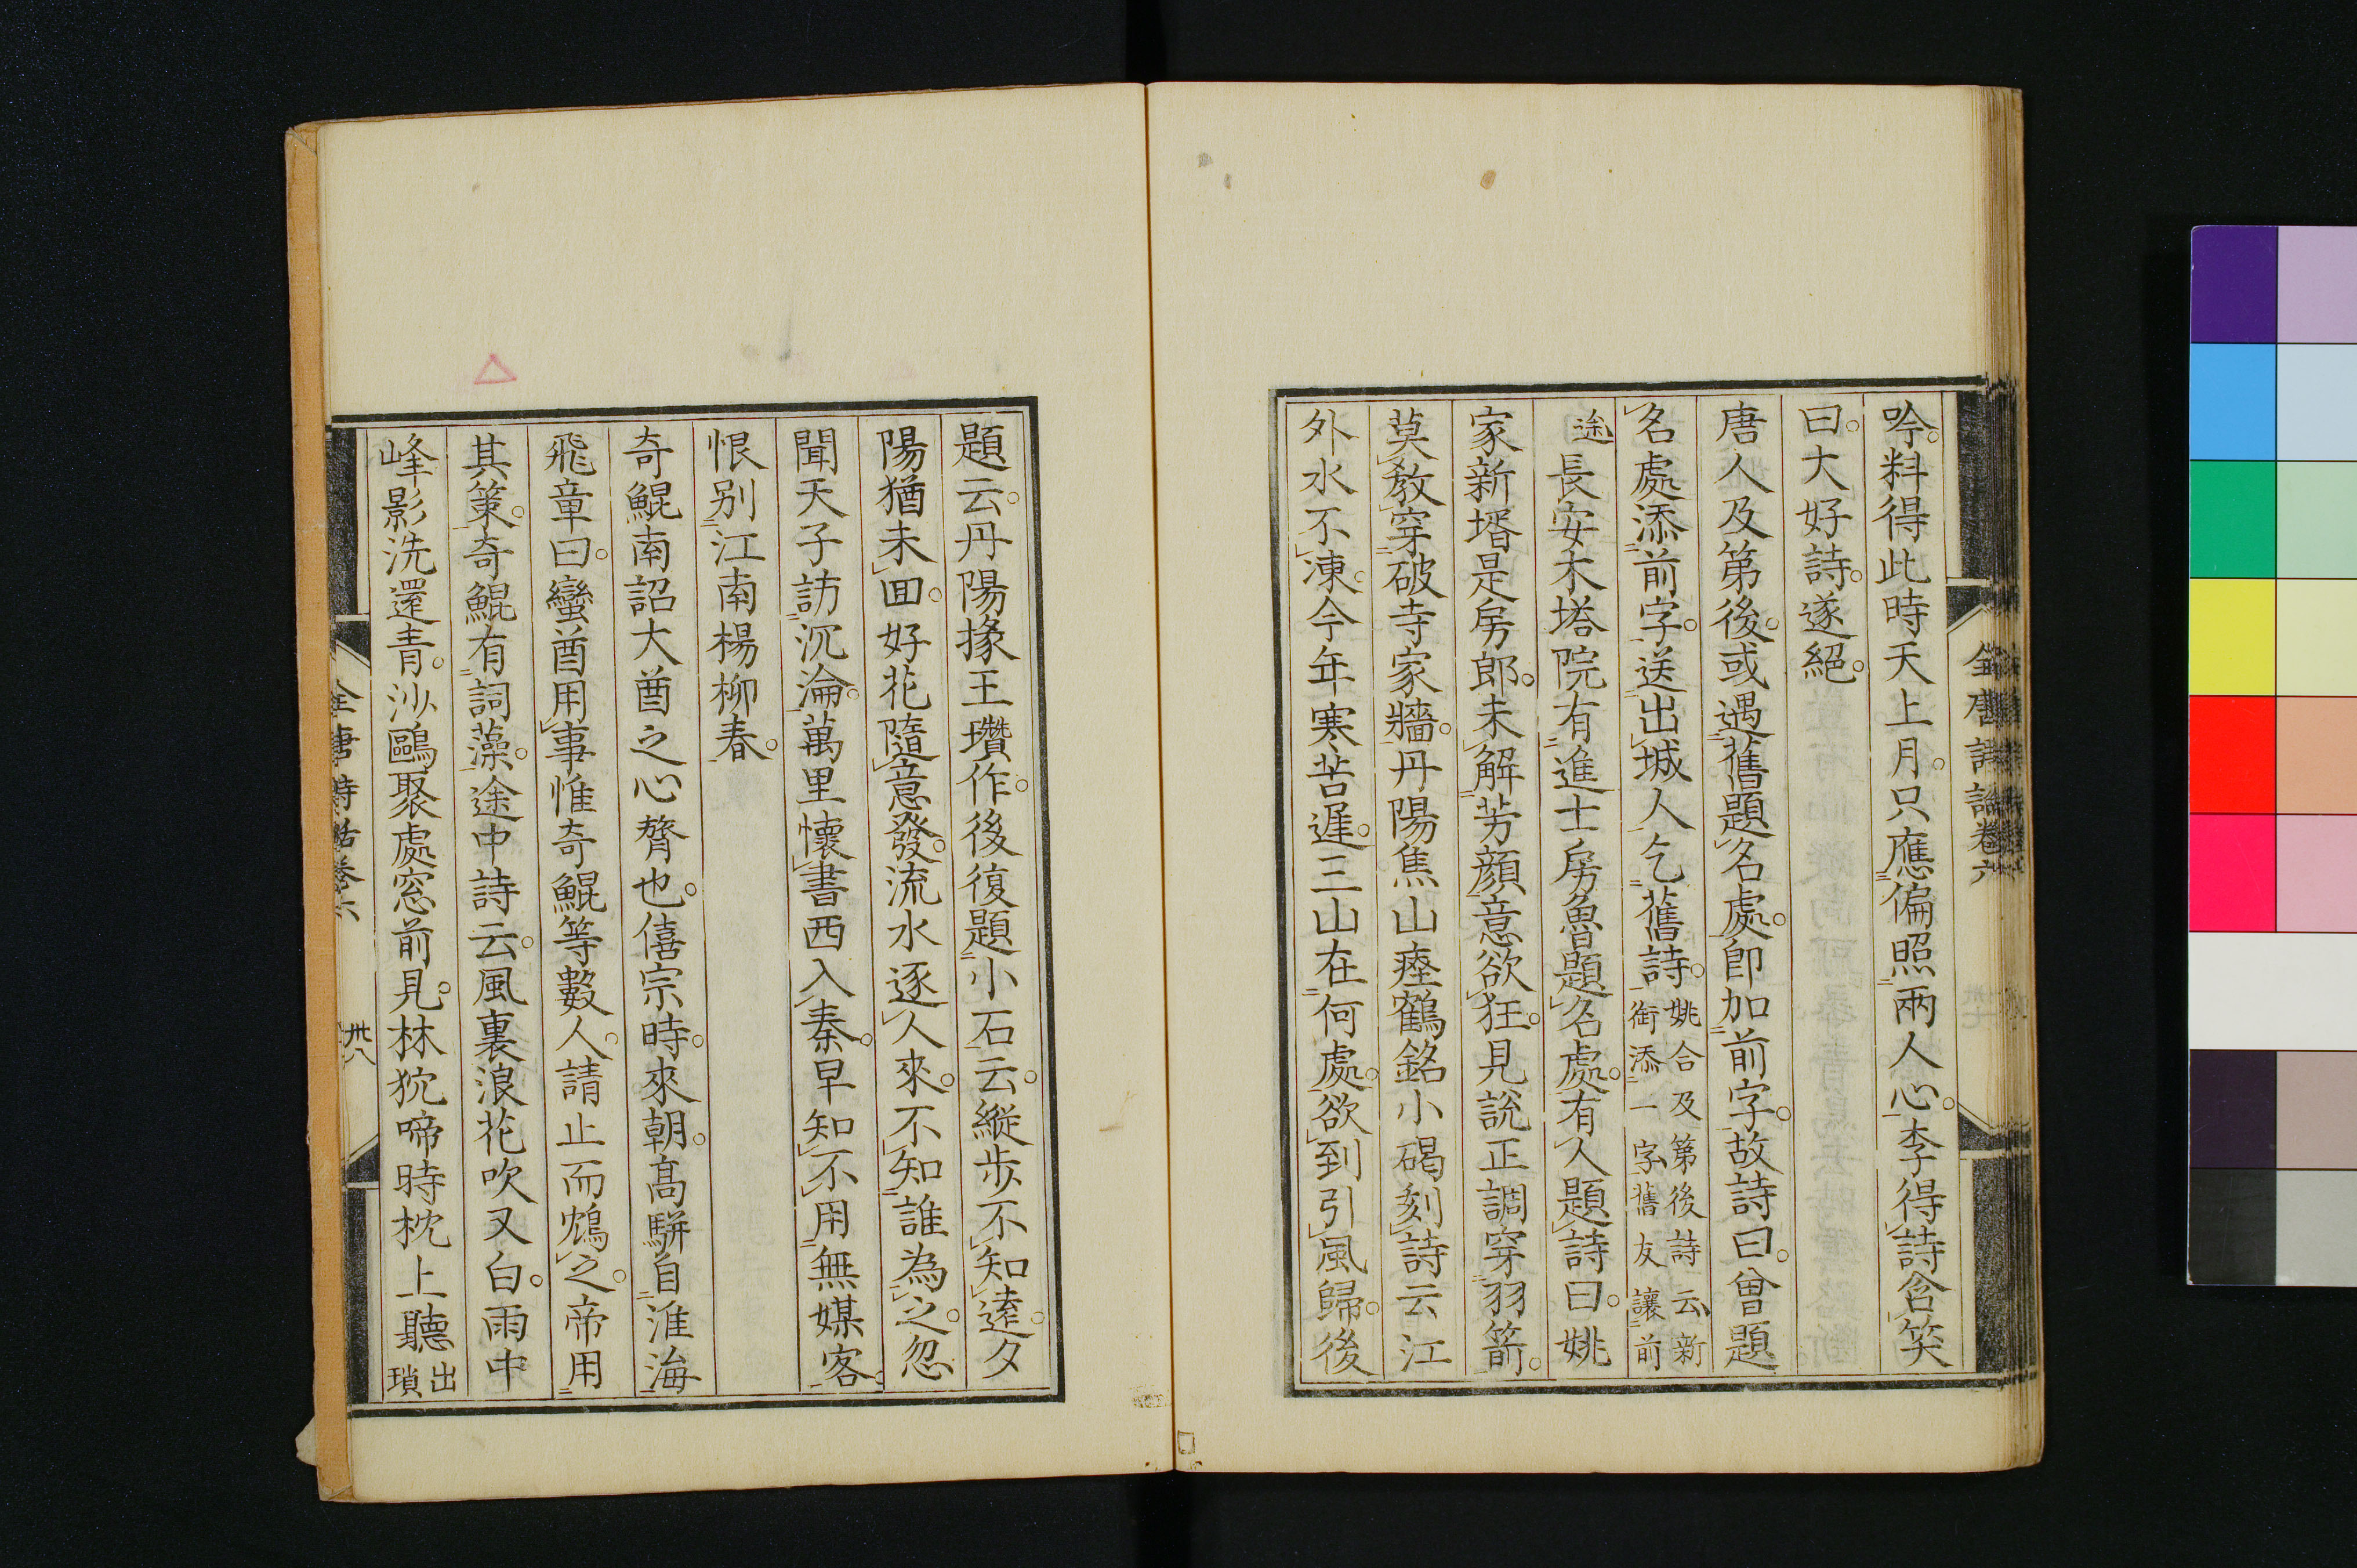 吟料得此時天上月只應偏照兩人心李得詩含笑
曰大好詩遂絕
唐人及第後或遇舊題名處即加前字故詩曰曾題
名處添前字送出城人乞舊詩姚合及第後詩云新
銜添一字舊友讓前
途長安木塔院有進士房魯題名處有人題詩曰姚
家新壻是房郎未解芳顏意欲狂見說正調穿羽箭
莫教穿破寺家牆丹陽焦山瘞鶴銘小碣刻詩云江
外水不凍今年寒苦遲三山在何處欲到引風歸後
全唐詩話卷六
題云丹陽掾王瓚作後復題小石云縱步不知遠夕
陽猶未回好花隨意發流水逐人來不知誰為之忽
聞天子訪沉淪萬里懷書西入秦早知不用無媒客
恨别江南楊柳春
奇鯤南詔大酋之心膂也僖宗時來朝高駢自淮海
飛章曰蠻酋用事惟奇鯤等數人請止而鴆之帝用
其策奇鯤有詞藻途中詩云風裏浪花吹又白雨中
峰影洗還青沙鷗聚處窓前見林狖啼時枕上聽出
瑣
全唐詩話卷六
卅八